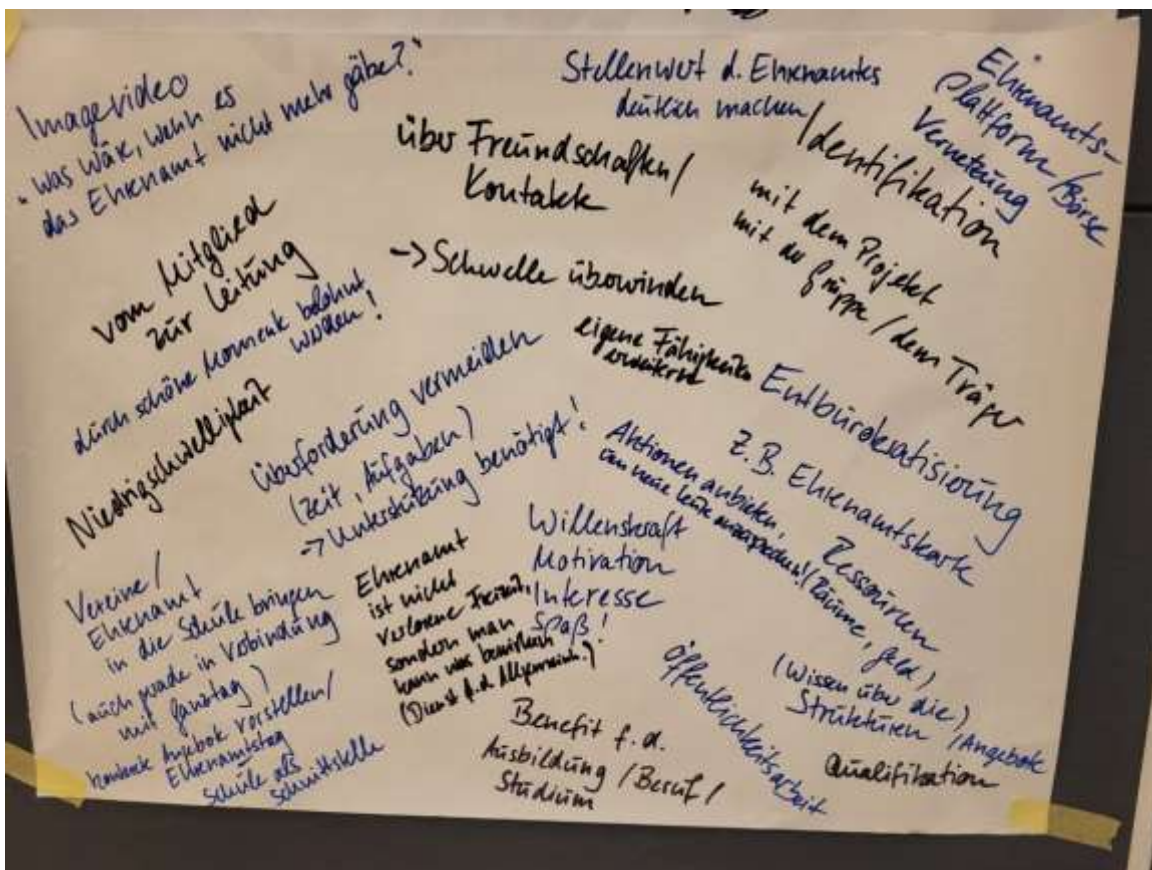 Imagevideo
"Was wäre, wenn es
das Ehrenamt nicht mehr gäbe?"
Stellenwert d. Ehrenamtes
deutlich machen
Ehrenamts-
plattform / Börse
Vernetzung
über Freundschaften/
Kontakte
Identifikation
mit dem Projekt
mit der Gruppe / dem Träger
vom Mitglied
zur Leitung
-> Schwelle überwinden
durch schöne Momente belohnt
werden!
eigene Fähigkeiten
erweitern
Niedrigschwelligkeit
Überforderung vermeiden
(Zeit, Aufgaben)
-> Unterstützung benötigt!
Entbürokratisierung
z.B. Ehrenamtskarte
Aktionen anbieten,
um neue Leute anzusprechen!
Ressourcen
(Räume, Geld)
Willenskraft
Motivation
Interesse
Spaß!
Vereine /
Ehrenamt
in die Schule bringen
(auch gerade in Verbindung
mit Ganztag)
konkrete Angebote vorstellen/
Ehrenamtstag
Schule als
Schnittstelle
Ehrenamt
ist nicht
verlorene Freizeit,
sondern man
kann was bewirken
(Dienst f. d. Allgemeinh.)
Benefit f. d.
Ausbildung / Beruf /
Studium
Öffentlichkeitsarbeit
(Wissen über die)
Strukturen / Angebote
Qualifikation